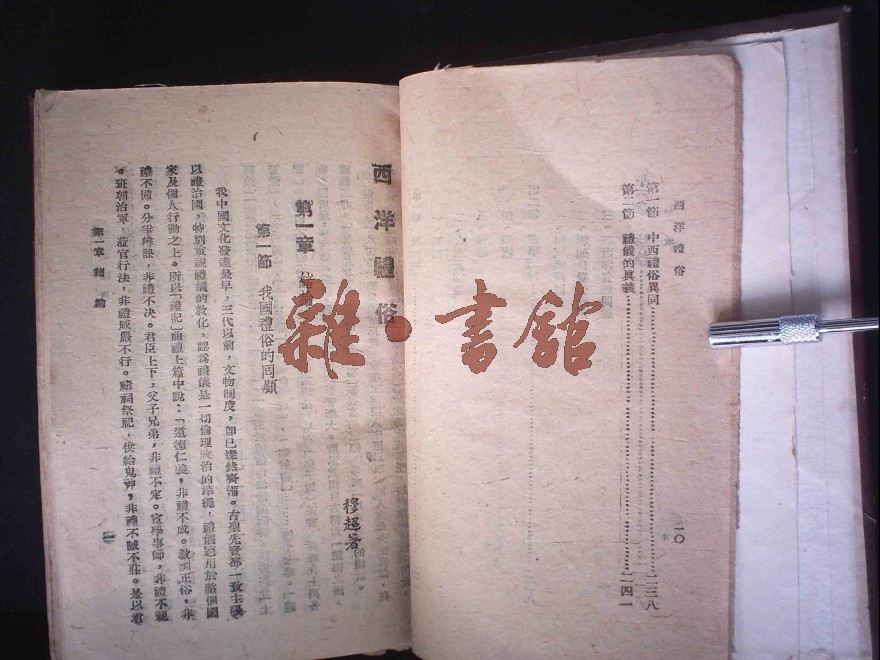 西洋禮俗
第一節 中西禮俗異同……二三八
第二節 禮儀的眞義……二四一
二〇
西洋禮俗
穆超著
第一章 緒
第一節 我國禮俗的囘顧
我中國文化發達最早，三代以前，文物制度，卽已燦然齊備。古聖先賢都一致主張
以禮治國，特別重視禮儀的敎化，認爲禮儀是一切倫理政治的準繩，禮儀適用於整個國
家及個人行動之上。所以「禮記」曲禮上篇中說：「道德仁義，非禮不成。敎訓正俗，非
禮不備。分爭辨訟，非禮不決。君臣上下，父子兄弟，非禮不定。宦學事師，非禮不親
。班朝治軍，涖官行法，非禮威嚴不行。禱祠祭祀，供給鬼神，非禮不誠不莊。是以君
第一章 緒論
一
雜·書館